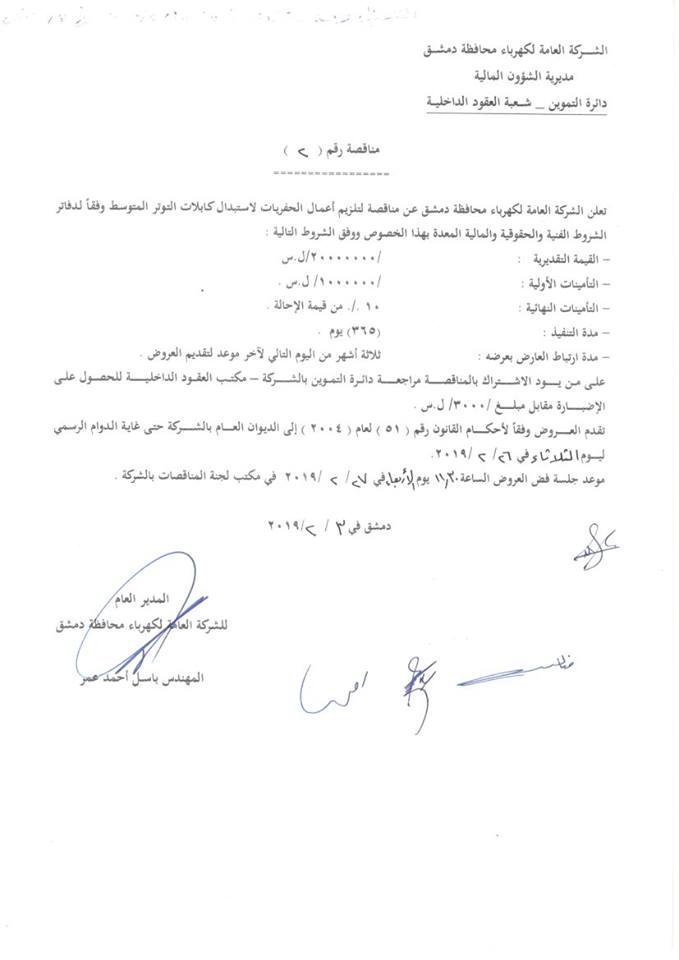 الشركة العامة لكهرباء محافظة دمشق
مديرية الشؤون المالية
دائرة التموين _ شعبة العقود الداخلية
مناقصة رقم ( ٢ )
=================
تعلن الشركة العامة لكهرباء محافظة دمشق عن مناقصة لتلزيم أعمال الحفريات لاستبدال كابلات التوتر المتوسط وفقاً لدفاتر
الشروط الفنية والحقوقية والمالية المعدة بهذا الخصوص ووفق الشروط التالية :
– القيمة التقديرية : /٢٠٠٠٠٠٠٠/ل.س
– التأمينات الأولية : /١٠٠٠٠٠٠/ ل.س .
– التأمينات النهائية : ١٠ ./. من قيمة الإحالة .
– مدة التنفيذ : (٣٦٥) يوم .
– مدة ارتباط العارض بعرضه : ثلاثة أشهر من اليوم التالي لآخر موعد لتقديم العروض .
على من يود الاشتراك بالمناقصة مراجعة دائرة التموين بالشركة – مكتب العقود الداخلية للحصول على
الإضبارة مقابل مبلغ /٣٠٠٠/ ل.س .
تقدم العروض وفقاً لأحكام القانون رقم ( ٥١ ) لعام ( ٢٠٠٤ ) إلى الديوان العام بالشركة حتى غاية الدوام الرسمي
ليوم الثلاثاء في ٢٦/ ٢ /٢٠١٩.
موعد جلسة فض العروض الساعة ١١,٣٠ يوم الأربعاء في ٢٧/ ٢ /٢٠١٩ في مكتب لجنة المناقصات بالشركة .
دمشق في ٣ / ٢ /٢٠١٩
المدير العام
للشركة العامة لكهرباء محافظة دمشق
المهندس باسل أحمد عمر